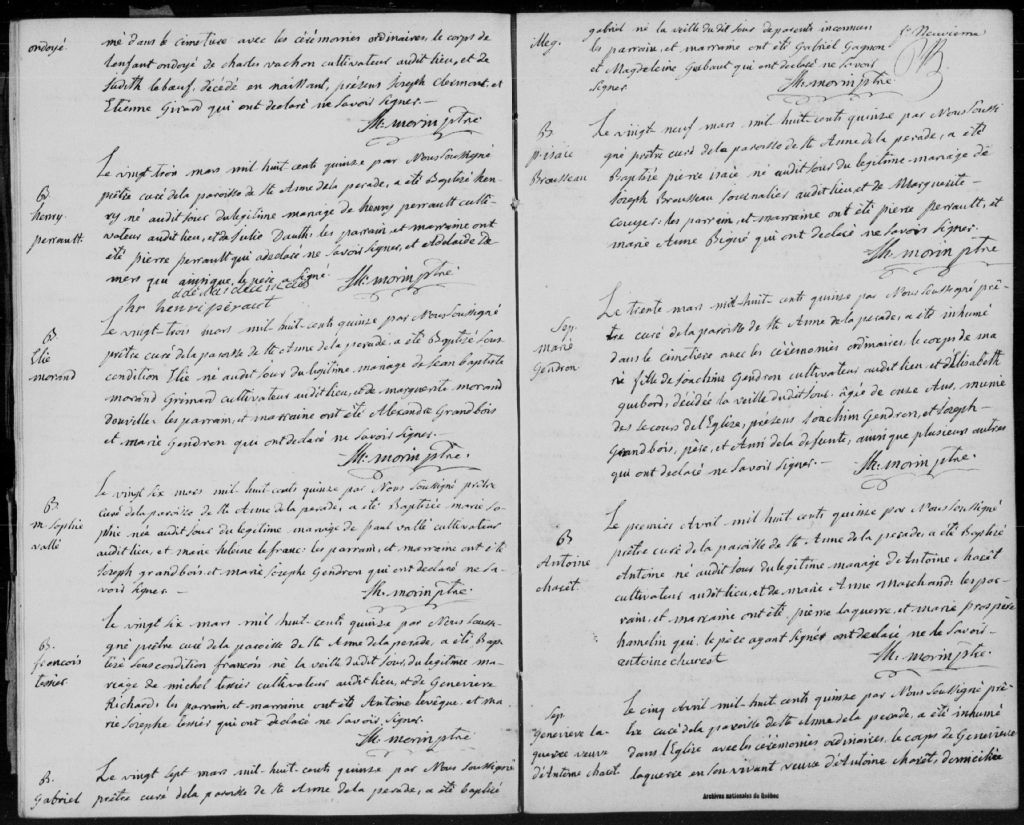 ondoyé
mé dans le cimetiere avec les cérémonies ordinaires, le corps de
lenfant ondoyé de charles vachon cultivateur audit lieu, et de
Judith lebœuf, décédé en naissant, présens Joseph Clermont, et
Etienne Girard qui ont declaré ne Savoir Signer. —
Jh. morin ptre.
B.
henry
perrault.
Le vingt trois mars mil huit cents quinze par Nous Soussigné
prêtre curé de la paroisse de Ste Anne de la perade, a été Baptisé hen-
ry né audit jour du légitime mariage de henry perrault culti-
vateur audit lieu, et de Julie Dault, les parrain et marraine ont
été pierre perrault qui a declaré ne Savoir Signer, et Adelaide De-
mers qui ainsique le père a Signé.
Jh. morin ptre.
henri péraut
B.
Elie
morand
Le vingt-trois mars mil huit-cents quinze par Nous Soussigné
prêtre curé de la paroisse de Ste Anne de la perade, a été Baptisé Sous
condition Elie né audit jour du légitime mariage de Jean Baptiste
morand Grimard cultivateur audit lieu, et de marguerite morand
Douville: les parrain, et marraine ont été Alexandre Grandbois
et marie Gendron qui ont declaré ne Savoir Signer.
Jh. morin ptre.
B.
m. Sophie
vallé
Le vingt six mars mil huit-cents quinze par Nous Soussigné prêtre
curé de la paroisse de Ste Anne de la perade, a été Baptisée marie So-
phie née audit jour du légitime mariage de paul vallé cultivateur
audit lieu, et marie helene le franc: les parrain, et marraine ont été
Joseph grandbois et marie Josephe Gendron qui ont declaré ne Sa-
voir Signer. —
Jh. morin ptre.
B.
françois
tessier
Le vingt six mars mil huit cents quinze par Nous Sous-
signé prêtre curé de la paroisse de Ste Anne de la perade, a été Bap-
tisé Sous condition françois né la veille dudit jour, du légitime ma-
riage de michel tessier cultivateur audit lieu, et de Genevieve
Richard: les parrain et marraine ont été Antoine levêque, et ma-
rie Josephe tessier qui ont declaré ne Savoir Signer.
Jh. morin ptre.
B.
Gabriel
Le vingt Sept mars mil huit-cents quinze par Nous Soussigné
prêtre curé de la paroisse de Ste Anne de la perade, a été baptisé
Illeg.
gabriel né la veille dudit jour de parents inconnus
les parrain, et marraine ont été Gabriel Gagnon
et Magdeleine Gabaut qui ont declaré ne Savoir
Signer.
Jh. morin ptre
f. Neuvieme
B.
p. isaie
Brousseau
Le vingt neuf mars mil huit-cents quinze par Nous Soussi-
gné prêtre curé de la paroisse de Ste Anne de la perade, a été
Baptisé pierre isaïe né audit jour du légitime mariage de
Joseph Brousseau Journalier audit lieu, et de Marguerite
Couyer: les parrain, et marraine ont été pierre perrault, et
marie Anne Bigué qui ont declaré ne Savoir Signer.
Jh. morin ptre
Sep.
marie
Gendron
Le trente mars mil-huit-cents quinze par Nous Soussigné prê-
tre curé de la paroisse de Ste Anne de la perade, a été inhumé
dans le cimetiere avec les cérémonies ordinaires le corps de ma-
rie fille de Joachim Gendron cultivateur audit lieu, et d'Elisabeth
guibord, décédée la veille dudit jour, âgée de onze Ans, munie
des Secours de l'Eglise, présens Joachim Gendron, et Joseph
Grandbois, père, et Ami de la defunte, ainsi que plusieurs autres
qui ont declaré ne Savoir Signer. —
Jh. morin ptre.
B
Antoine
chacêt.
Le premier Avril mil huit cents quinze par Nous Soussigné
prêtre curé de la paroisse de Ste. Anne de la perade, a été Baptisé
Antoine né audit jour du légitime mariage d'Antoine chacêt
cultivateur audit lieu, et de marie Anne Marchand: les par-
rain, et marraine ont été pierre laguerre, et marie prospère
hamelin qui, le père ayant Signé, ont declaré ne le Savoir. —
antoine charest
Jh. morin ptre.
Sep.
Genevieve la-
guerre veuve
d'Antoine chacêt.
Le cinq Avril mil huit-cents quinze par Nous Soussigné prê-
tre curé de la paroisse de Ste Anne de la perade, a été inhumé
dans l'Eglise avec les cérémonies ordinaires le corps de Genevieve
laguerre en Son vivant veuve d'Antoine chacêt, domiciliée
Archives nationales du Québec